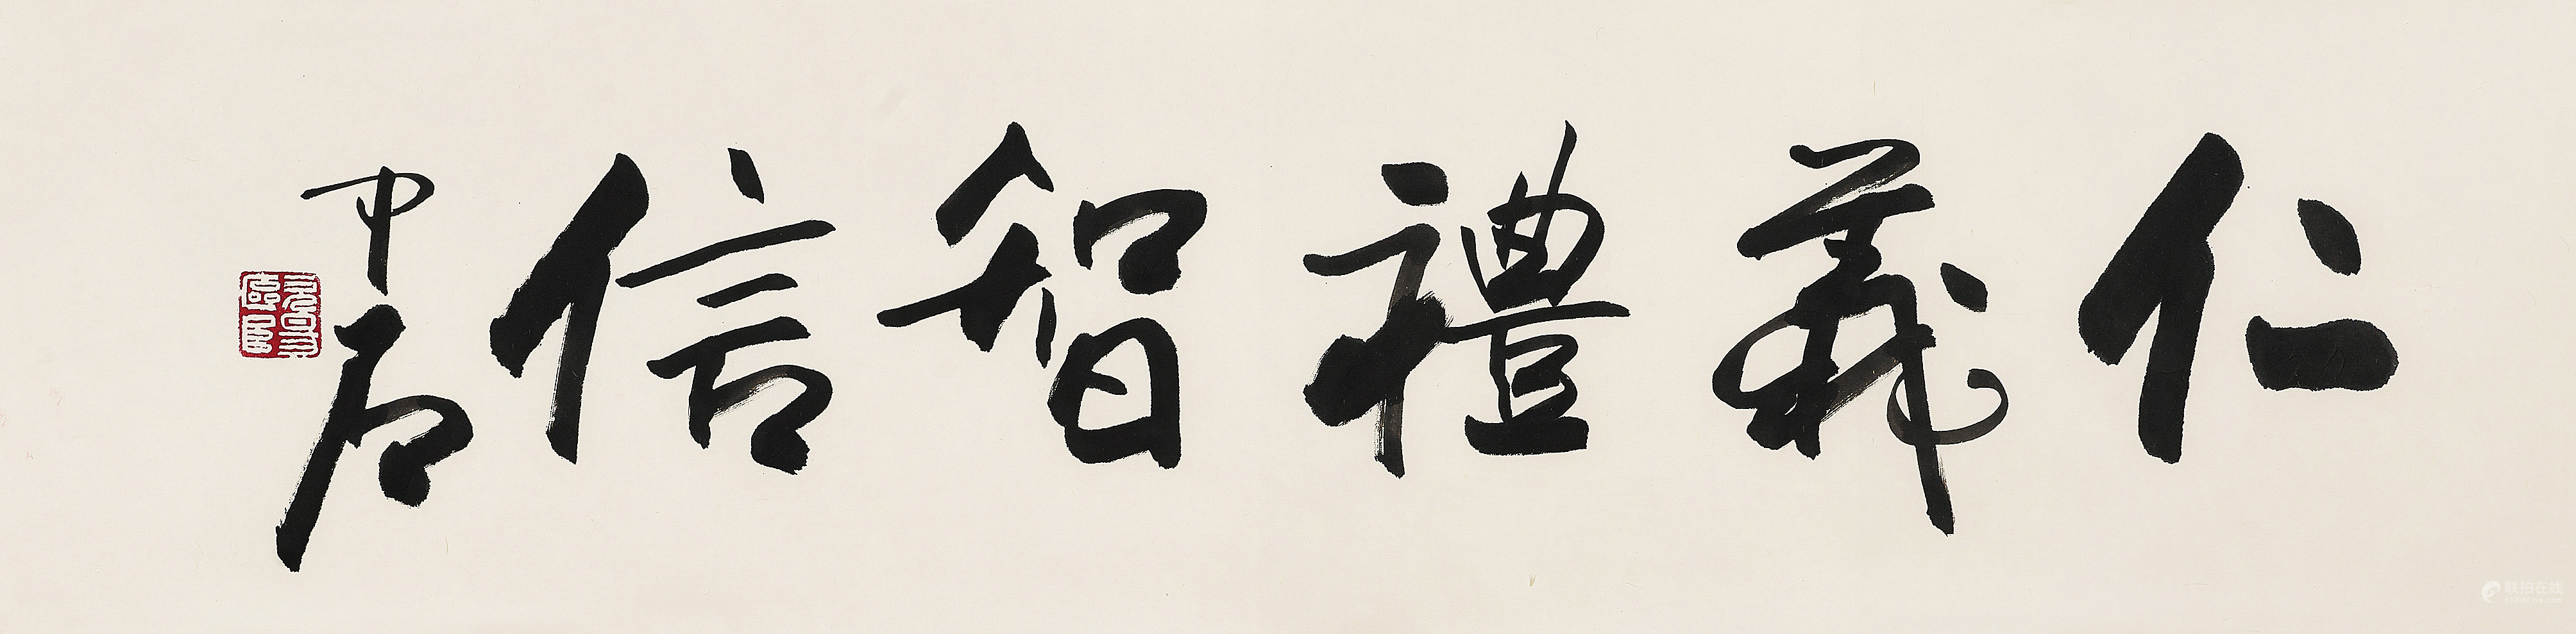 仁義禮智信
中石
联拍在线